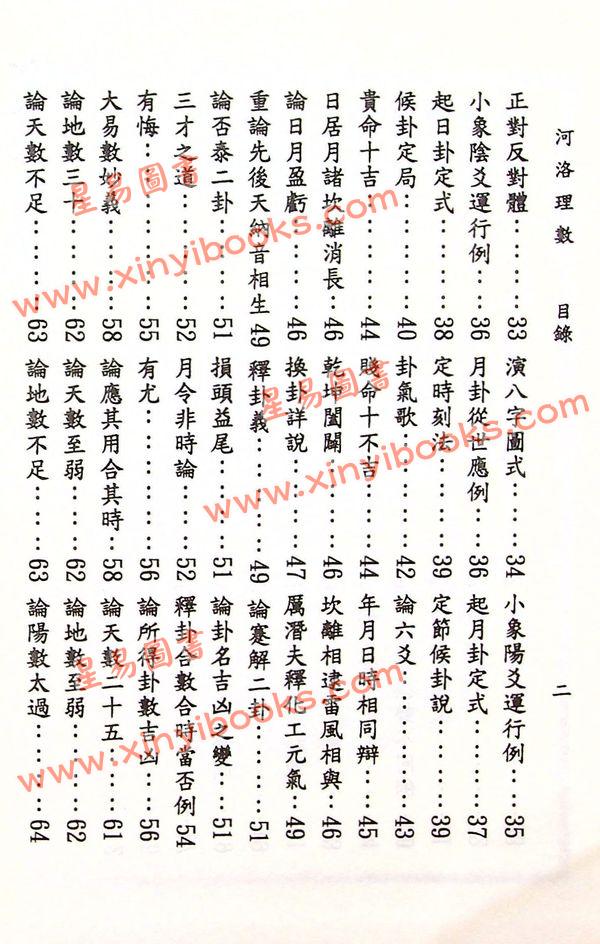 河洛理數 目錄 二
正對反對體……33 演八字圖式……34 小象陽爻運行例……35
小象陰爻運行例……36 月卦從世應例……36 起月卦定式……37
起日卦定式……38 定時刻法……39 定節候卦說……39
候卦定局……40 卦氣歌……42 論六爻……43
貴命十吉……44 賤命十不吉……44 年月日時相同辯……45
日居月諸坎離消長……46 乾坤闔闢……46 坎離相逮雷風相與……46
論日月盈虧……46 換卦詳說……47 厲潛夫釋化工元氣……49
重論先後天納音相生 49 釋卦義……49 論蹇解二卦……51
論否泰二卦……51 損頭益尾……51 論卦名吉凶之變……51
三才之道……52 月令非時論……52 釋卦合數合時當否例 54
有悔……55 有尤……56 論所得卦數吉凶……56
大易數妙義……58 論應其用合其時……58 論天數二十五……61
論地數三十……62 論天數至弱……62 論地數至弱……62
論天數不足……63 論地數不足……63 論陽數太過……64
星易圖書
www.xinyibooks.com
星易圖書
www.xinyibooks.com
星易圖書
www.xinyibooks.com